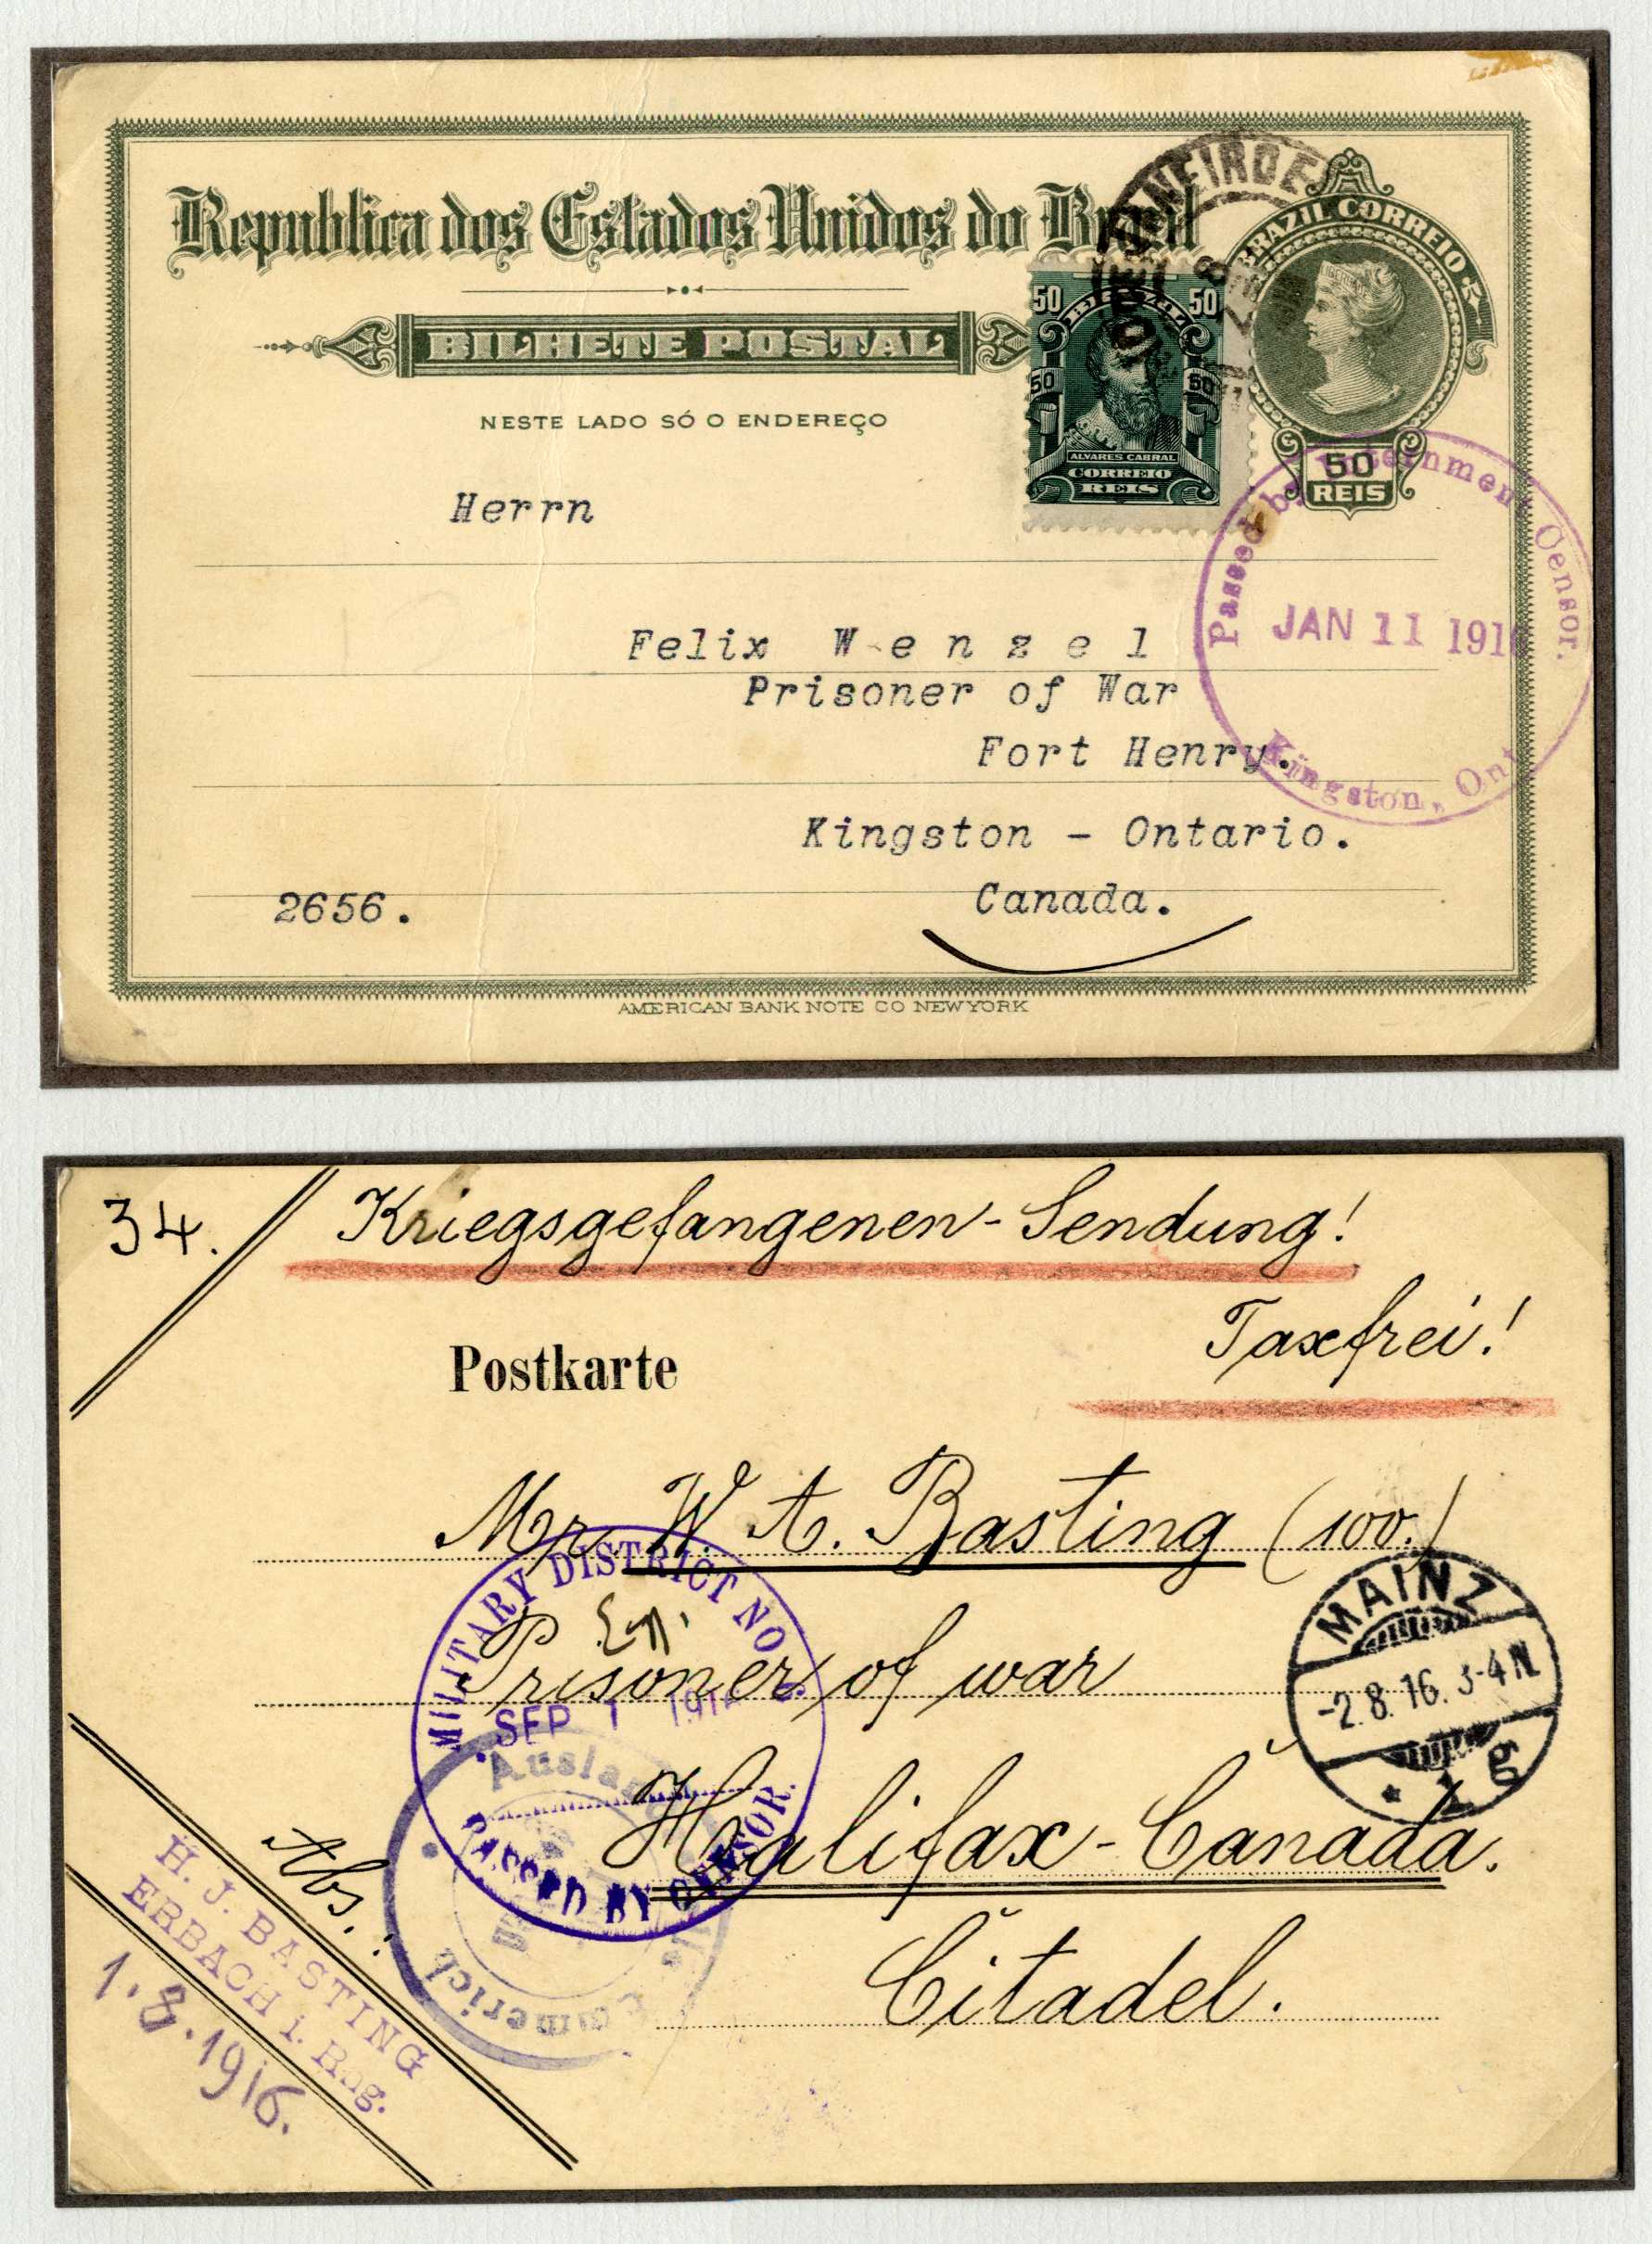 Republica dos Estados Unidos do Brazil
BILHETE POSTAL
NESTE LADO SÓ O ENDEREÇO
BRAZIL CORREIO
50
REIS
50 50
50 50
ALVARES CABRAL
CORREIO
REIS
Passed by Internment Censor.
JAN 11 191
Kingston, Ont
Herrn
Felix Wenzel
Prisoner of War
Fort Henry.
Kingston - Ontario.
2656.
Canada.
AMERICAN BANK NOTE CO NEW YORK
34.
Kriegsgefangenen-Sendung!
Taxfrei!
Postkarte
Mr. W. A. Basting (100.)
Prisoner of war
Halifax-Canada.
Citadel.
MAINZ
-2.8.16. 3-4 N
* 1 gg
MILITARY DISTRICT NO.
SEP 1 191
PASSED BY CENSOR.
Abs.:
H. J. BASTING
ERBACH i. Rhg.
1.8.1916.